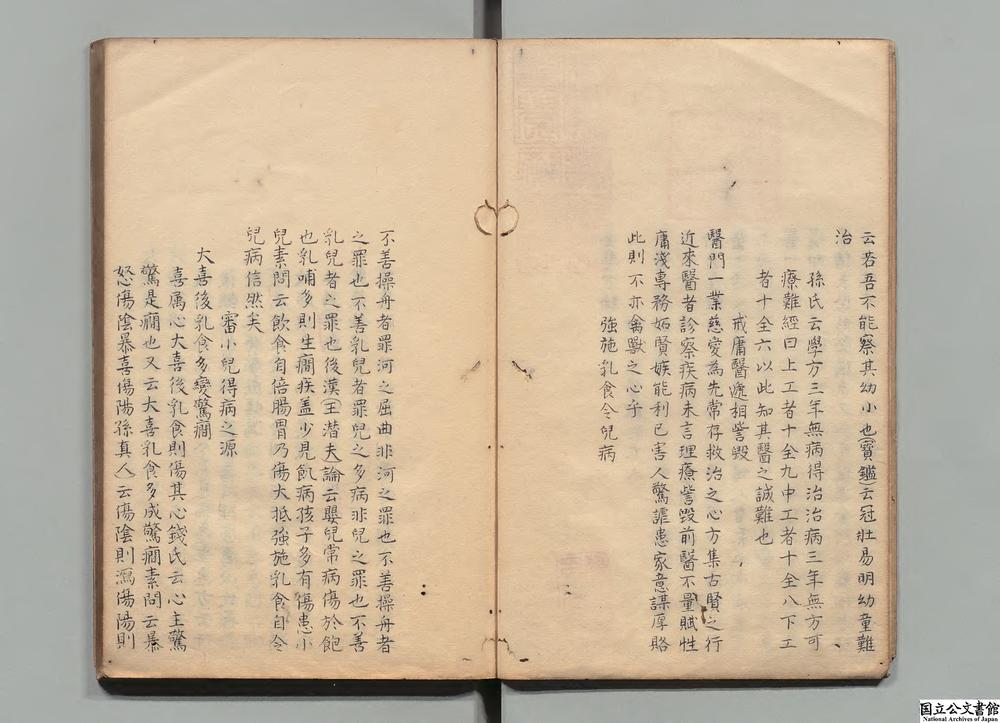 云若吾不能察其幼小也寶鑑云冠壯易明幼童難
治
孫氏云學方三年無病得治治病三年無方可
療難經曰上工者十全九中工者十全八下工
者十全六以此知其醫之誠難也
戒庸醫遞相訾毀
醫門一業慈愛為先常存救治之心方集古賢之行
近來醫者診察疾病未言理療訾毀前醫不量賦性
庸淺專務妬賢嫉能利己害人驚謔患家意謀厚賂
此則不亦禽獸之心乎
強施乳食令兒病
不善操舟者罪河之屈曲非河之罪也不善操舟者
之罪也不善乳兒者罪兒之多病非兒之罪也不善
乳兒者之罪也後漢王潜夫論云嬰兒常病傷於飽
也乳哺多則生癇疾盖少見飢病孩子多有傷患小
兒素問云飲食自倍腸胃乃傷大抵強施乳食自令
兒病信然矣
審小兒得病之源
大喜後乳食多變驚癇
喜属心大喜後乳食則傷其心錢氏云心主驚
驚是癇也又云大喜乳食多成驚癇素問云暴
怒傷陰暴喜傷陽孫真人云傷陰則瀉傷陽則
国立公文書館
National Archives of Japan